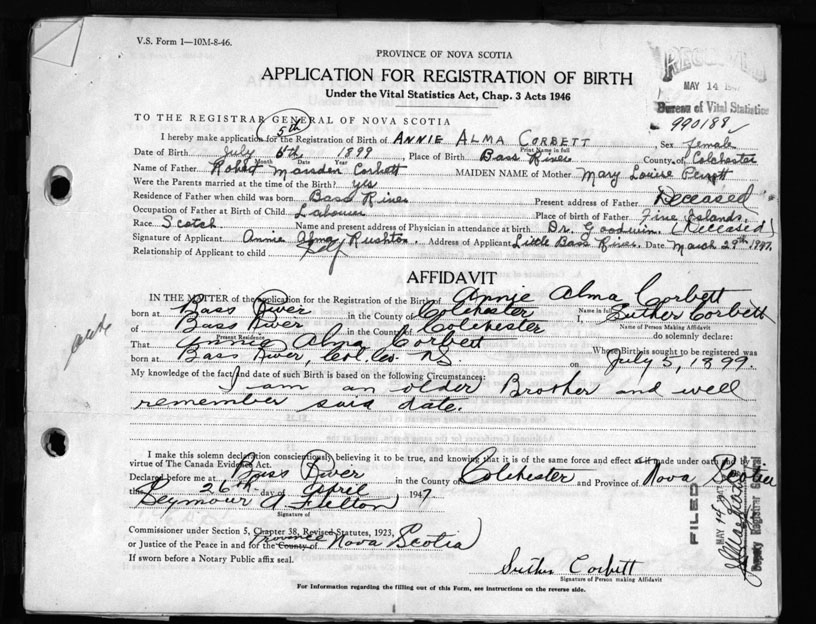 V.S. Form 1—10M-8-46.
PROVINCE OF NOVA SCOTIA
APPLICATION FOR REGISTRATION OF BIRTH
Under the Vital Statistics Act, Chap. 3 Acts 1946
RECEIVED
MAY 14
Bureau of Vital Statistics
990188
TO THE REGISTRAR GENERAL OF NOVA SCOTIA
5th
I hereby make application for the Registration of Birth of ANNIE ALMA CORBETT, Sex female
Print Name in full
Date of Birth July 6th 1899 Place of Birth Bass River County of Colchester
Month Date Year
Name of Father Robert Marsden Corbett MAIDEN NAME of Mother Mary Louise Perrott
Were the Parents married at the time of Birth? yes
Residence of Father when child was born Bass River Present address of Father Deceased
Occupation of Father at Birth of Child Labourer Place of birth of Father Five Islands.
Race Scotch Name and present address of Physician in attendance at birth Dr. Goodwin. (Deceased)
Signature of Applicant Annie Alma Rushton. Address of Applicant Little Bass River. Date March 29th 1947.
Relationship of Applicant to child Self
AFFIDAVIT
IN THE MATTER of the application for the Registration of the Birth of Annie Alma Corbett
Name in full
born at Bass River in the County of Colchester I, Suther Corbett
Name of Person Making Affidavit
of Bass River in the County of Colchester do solemnly declare:
Present Residence
That Annie Alma Corbett Whose Birth is sought to be registered was
born at Bass River, Col. Co. N.S. on July 5, 1899.
My knowledge of the fact and date of such Birth is based on the following Circumstances:
I am an older Brother and well
remember said date.
I make this solemn declaration conscientiously believing it to be true, and knowing that it is of the same force and effect as if made under oath and by
virtue of The Canada Evidence Act.
Declared before me at Bass River in the County of Colchester and Province of Nova Scotia
this 26th day of April 1947
Seymour A Fulton
Signature of
Commissioner under Section 5, Chapter 38, Revised Statutes, 1923,
or Justice of the Peace in and for the County of Province Nova Scotia
If sworn before a Notary Public affix seal.
Suther Corbett
Signature of Person making Affidavit
FILED
MAY 14 1947
Deputy Registrar General
For Information regarding the filling out of this Form, see instructions on the reverse side.